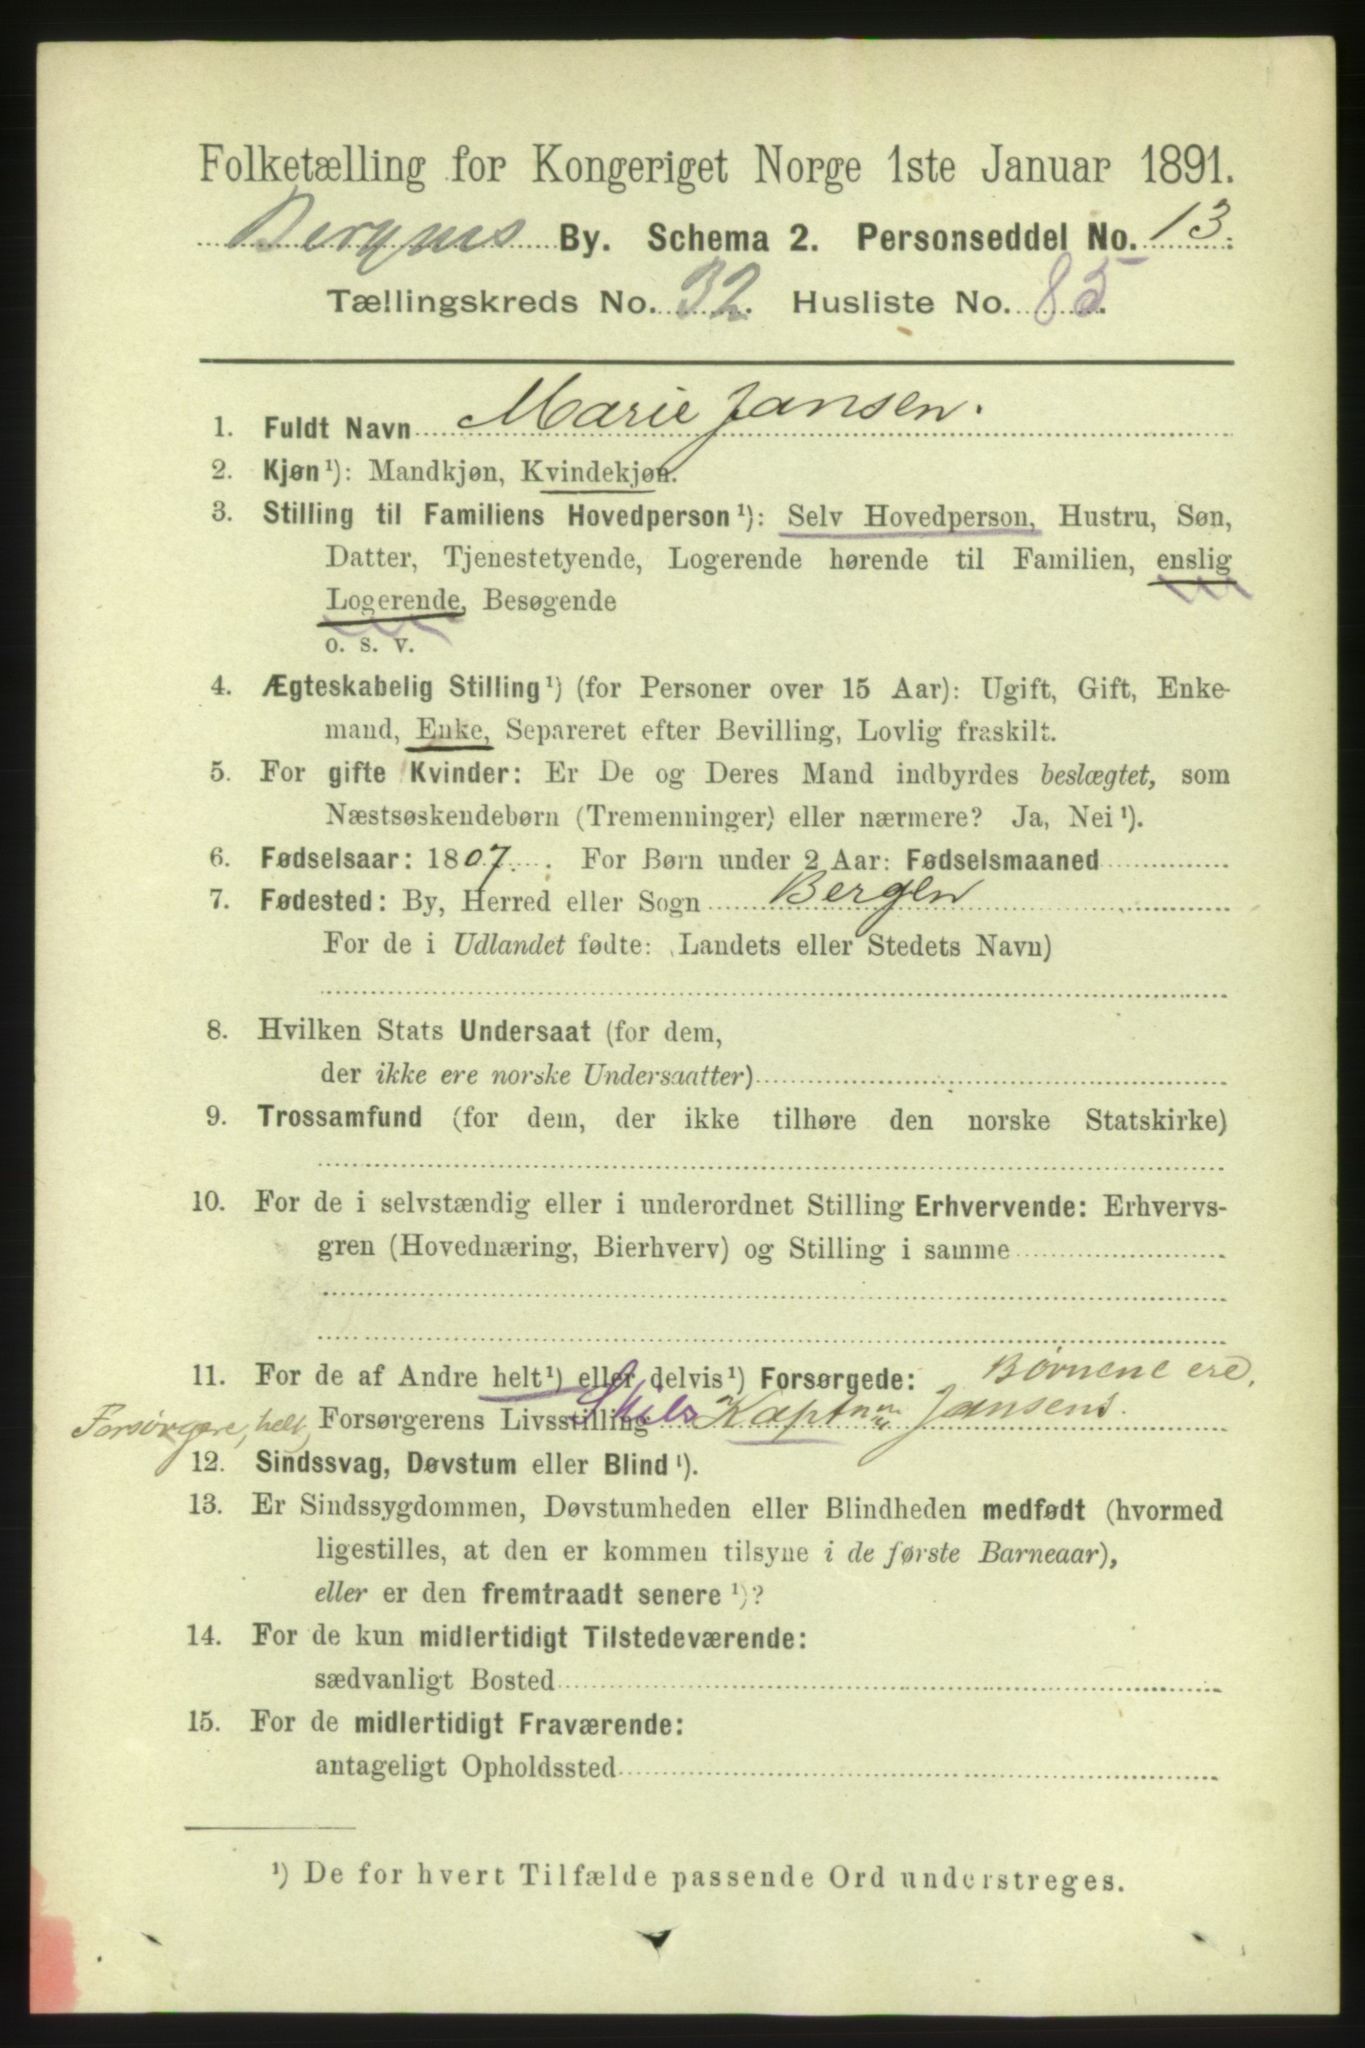 Folketælling for Kongeriget Norge 1ste Januar 1891.
Bergens By. Schema 2. Personseddel No. 13.
Tællingskreds No. 32. Husliste No. 85.
1. Fuldt Navn Marie Jansen.
2. Kjøn¹): Mandkjøn, Kvindekjøn.
3. Stilling til Familiens Hovedperson¹): Selv Hovedperson, Hustru, Søn,
Datter, Tjenestetyende, Logerende hørende til Familien, enslig
Logerende, Besøgende
o. s. v.
4. Ægteskabelig Stilling¹) (for Personer over 15 Aar): Ugift, Gift, Enke-
mand, Enke, Separeret efter Bevilling, Lovlig fraskilt.
5. For gifte Kvinder: Er De og Deres Mand indbyrdes beslægtet, som
Næstsøskendebørn (Tremenninger) eller nærmere? Ja, Nei¹).
6. Fødselsaar: 1807. For Børn under 2 Aar: Fødselsmaaned
7. Fødested: By, Herred eller Sogn Bergen
For de i Udlandet fødte: (Landets eller Stedets Navn)
8. Hvilken Stats Undersaat (for dem,
der ikke ere norske Undersaatter)
9. Trossamfund (for dem, der ikke tilhøre den norske Statskirke)
10. For de i selvstændig eller i underordnet Stilling Erhvervende: Erhvervs-
gren (Hovednæring, Bierhverv) og Stilling i samme
11. For de af Andre helt¹) eller delvis¹) Forsørgede: Børnene ere,
Forsørgere, helt, Forsørgerens Livsstilling Skibs Kaptn Jansens.
12. Sindssvag, Døvstum eller Blind¹).
13. Er Sindssygdommen, Døvstumheden eller Blindheden medfødt (hvormed
ligestilles, at den er kommen tilsyne i de første Barneaar),
eller er den fremtraadt senere¹)?
14. For de kun midlertidigt Tilstedeværende:
sædvanligt Bosted
15. For de midlertidigt Fraværende:
antageligt Opholdssted
¹) De for hvert Tilfælde passende Ord understreges.